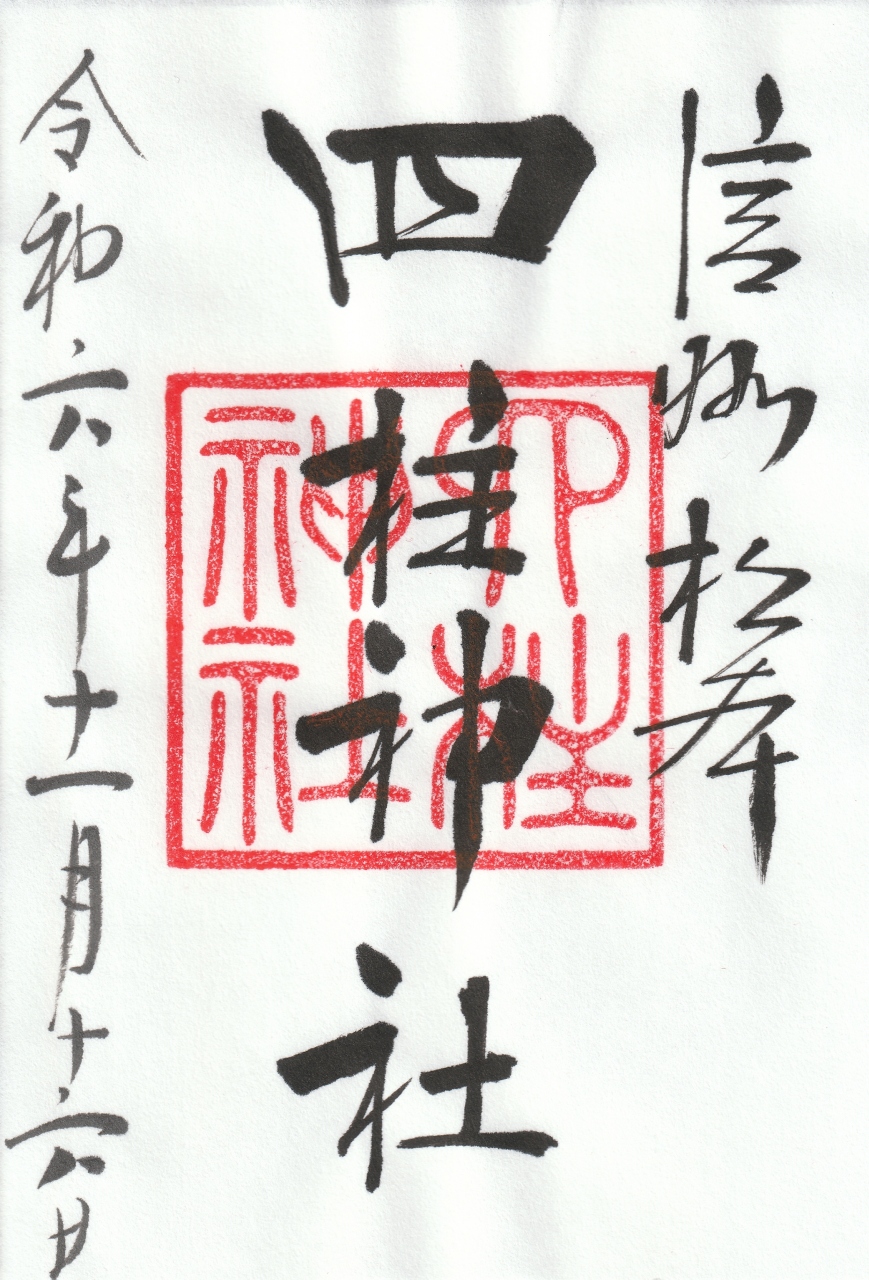 信州松本
四柱神社
四柱神社
令和六年十一月十六日